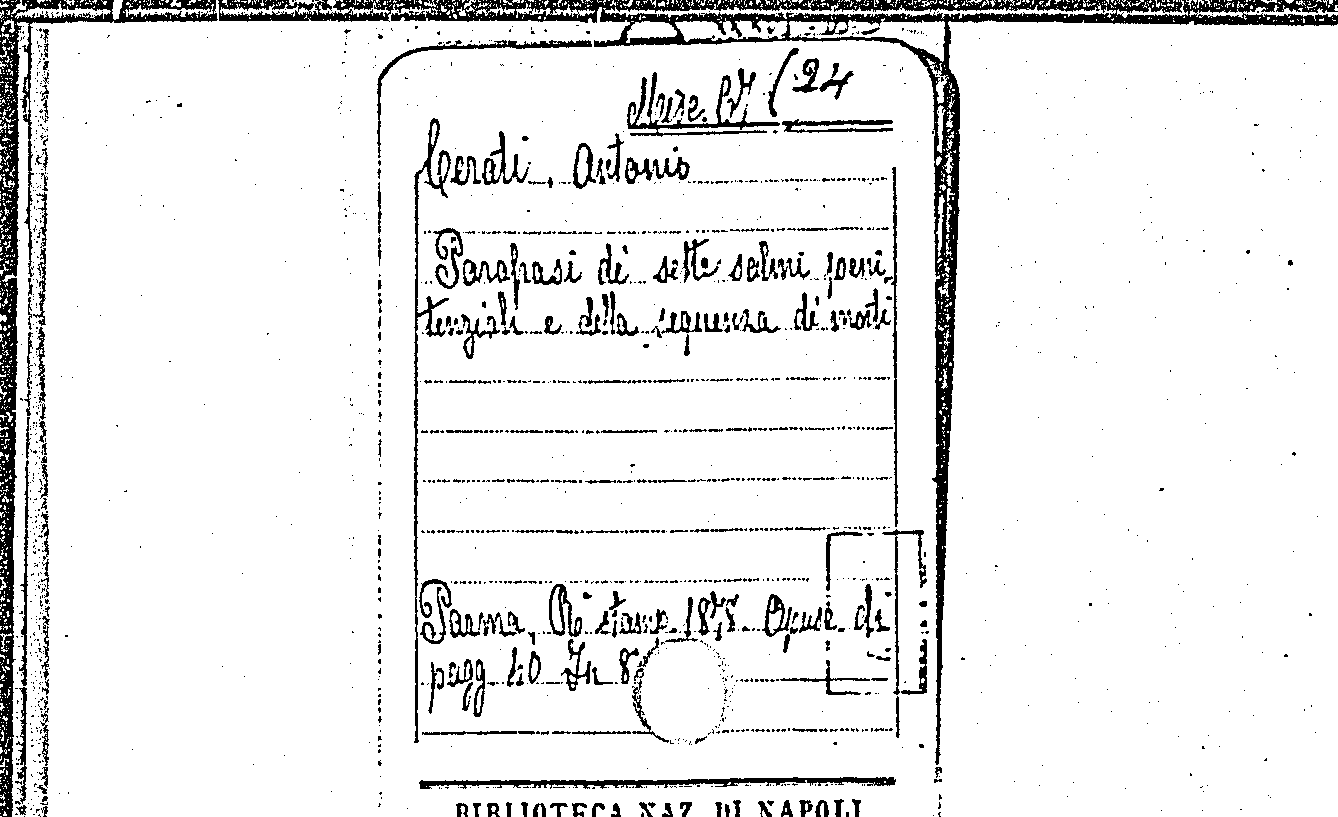 Misc. 67 (24
Cerati, Antonio
Parafrasi di sette salmi peni.
tenziali e della sequenza di morti
Parma, R. stamp. 1878. Opusc. di
pagg. 40 In 8
BIBLIOTECA NAZ. DI NAPOLI